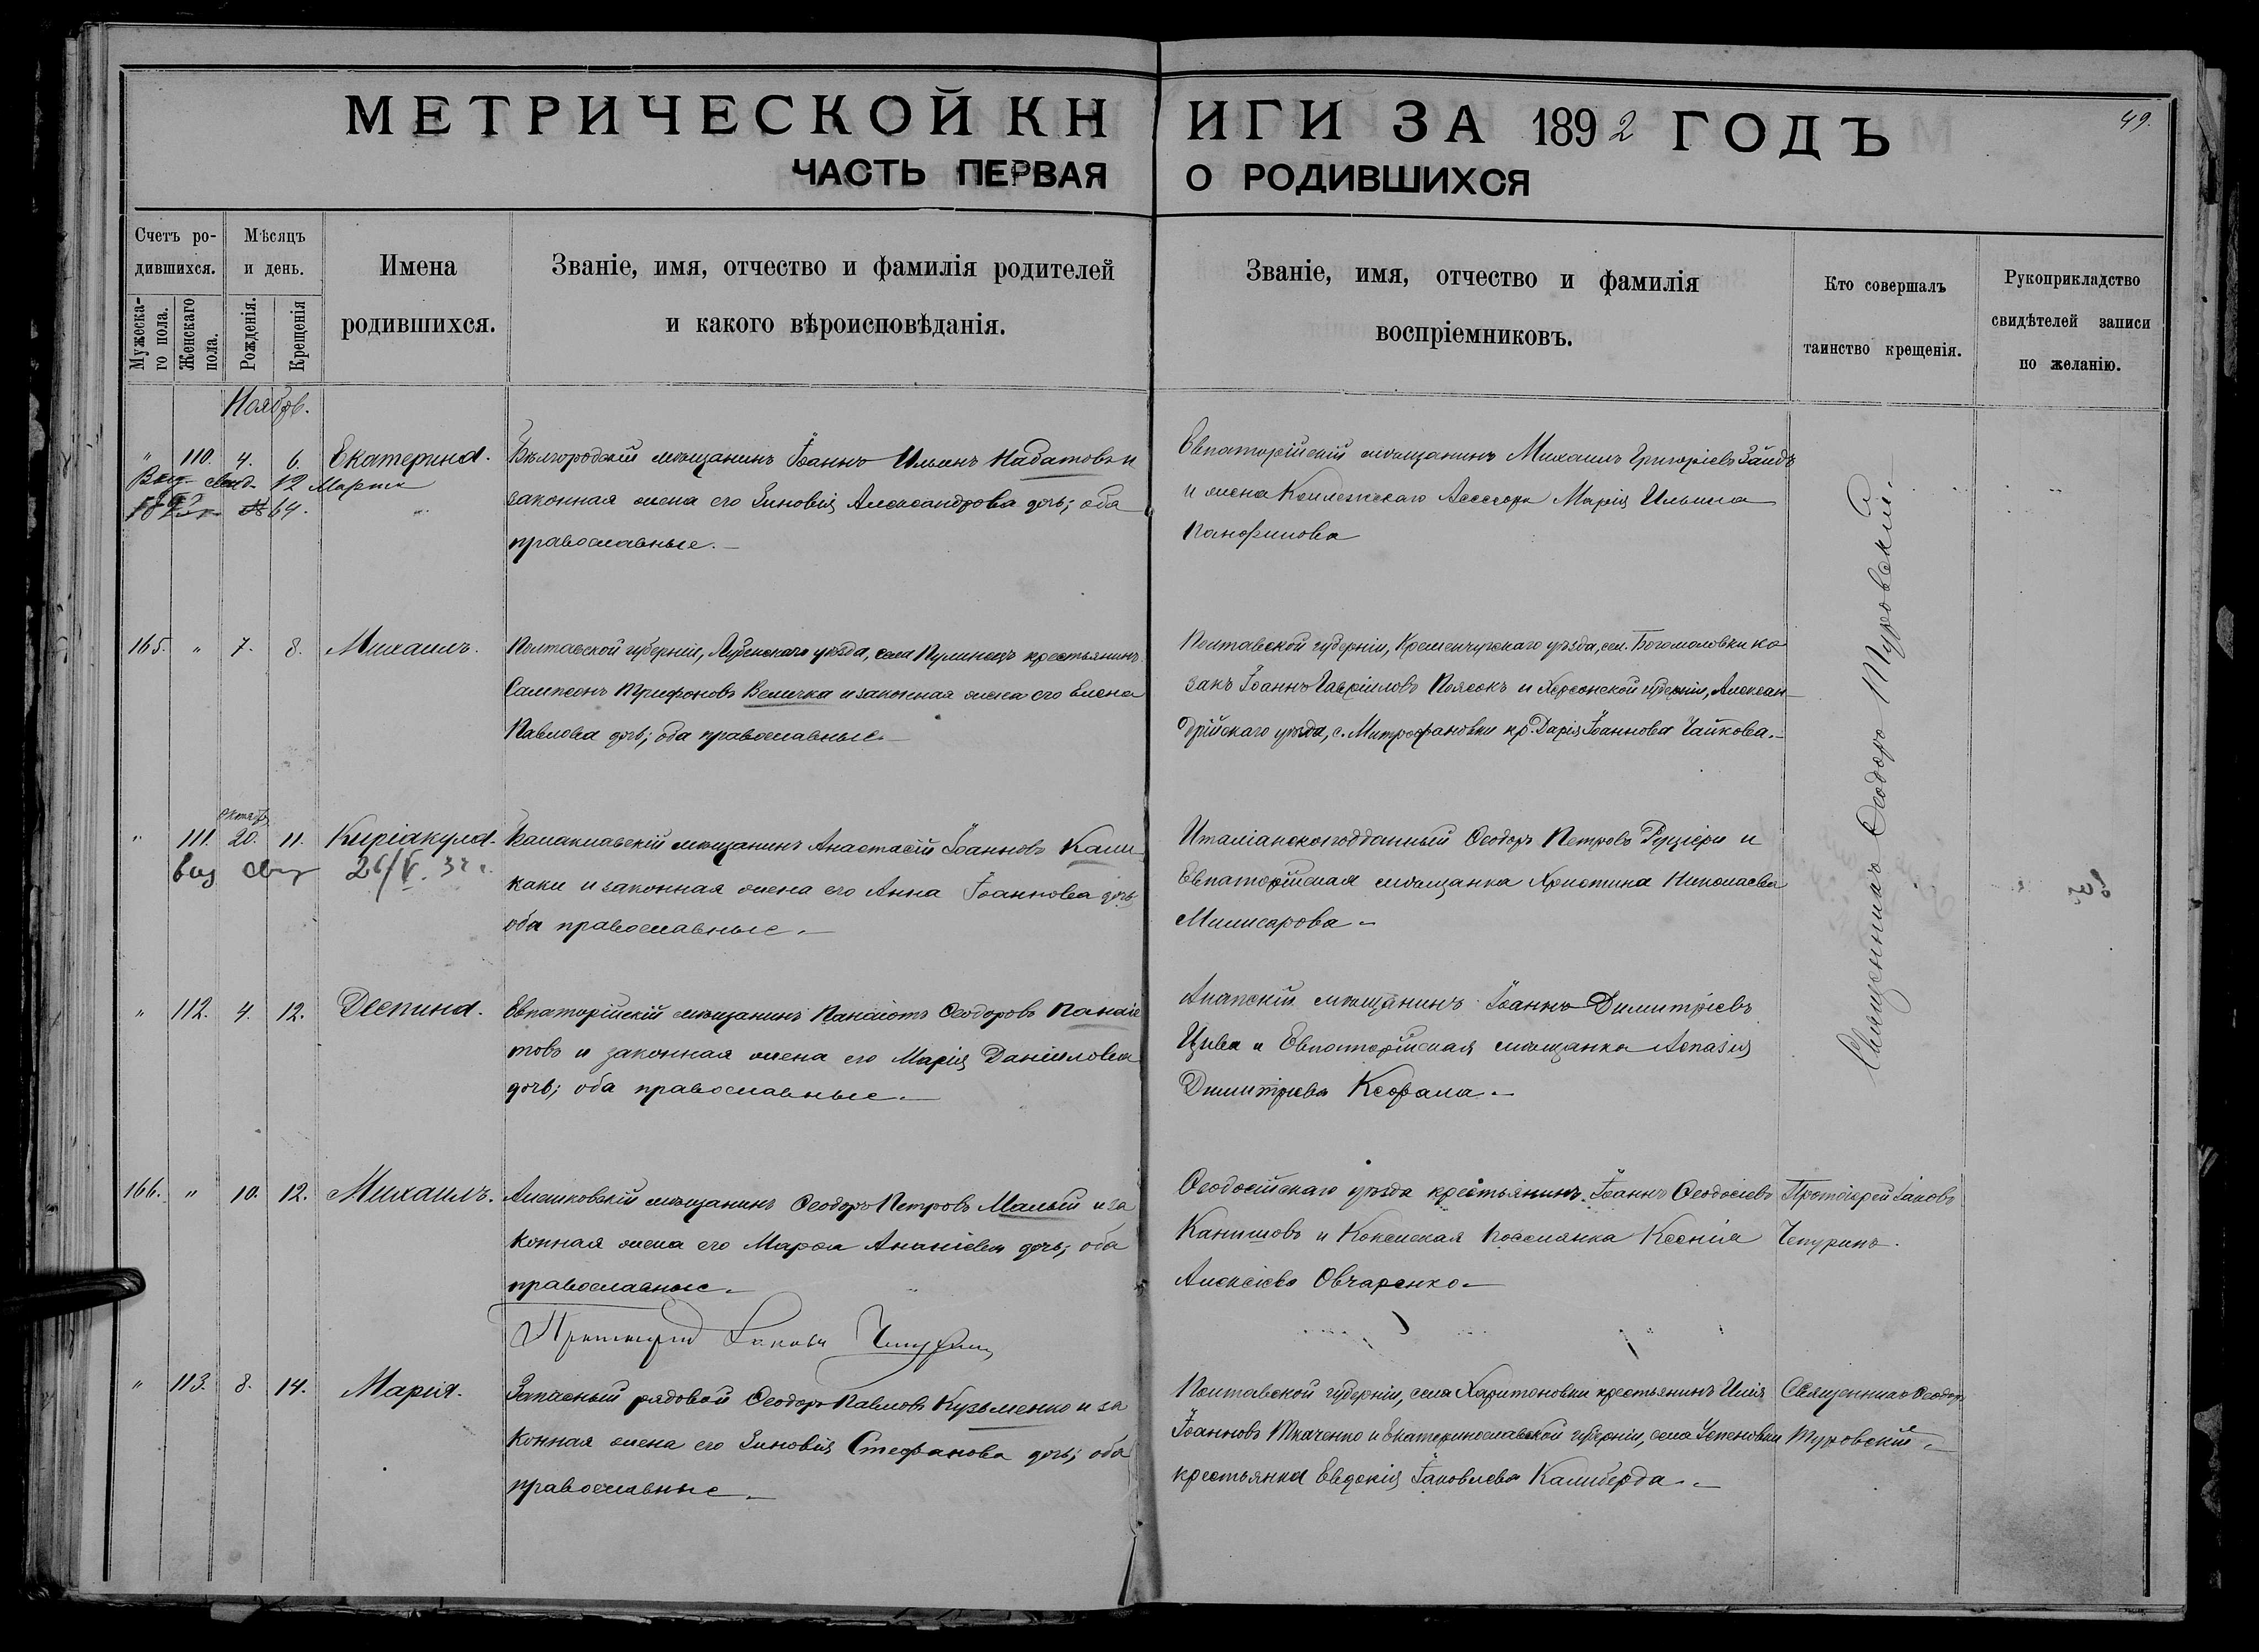 МЕТРИЧЕСКОЙ КНИГИ ЗА 1892 ГОДЪ
49.
ЧАСТЬ ПЕРВАЯ О РОДИВШИХСЯ
Счетъ ро-
дившихся.
Мужеска-
го пола.
Женскаго
пола.
Мѣсяцъ
и день.
Рожденія.
Крещенія
Имена
родившихся.
Званіе, имя, отчество и фамилія родителей
и какого вѣроисповѣданія.
Званіе, имя, отчество и фамилія
воспріемниковъ.
Кто совершалъ
таинство крещенія.
Рукоприкладство
свидѣтелей записи
по желанію.
Ноябрь.
" 110. 4. 6. Екатерина.
12 Марта
№ 64.
Бѣлгородскій мѣщанинъ Іоаннъ Ильинъ Набатовъ и
законная жена его Зиновія Александрова дочь; оба
православные.
Евпаторійскій мѣщанинъ Михаилъ Григорьевъ
и жена Коллежскаго Асессора Марія Ильина
Панфилова
Священникъ Ѳеодоръ Туровскій.
165. " 7. 8. Михаилъ.
Полтавской губерніи, Лубенскаго уѣзда, села Пулинецъ крестьянинъ
Сампсонъ Трифоновъ Величка и законная жена его Елена
Павлова дочь; оба православные.
Полтавской губерніи, Кременчугскаго уѣзда, сел. Богомоловки ко-
закъ Іоаннъ Гавріиловъ Поясокъ и Херсонской губерніи, Алексан-
дрійскаго уѣзда, с. Митрофановки кр. Дарія Іоаннова Чайкова.
" 111. октяб. 20. 11. Киріакула.
выд свид 26/V. 32 г.
Балаклавскій мѣщанинъ Анастасій Іоанновъ Кали-
каки и законная жена его Анна Іоаннова дочь
оба православные.
Италіанскоподданный Ѳеодоръ Петровъ и
Евпаторійская мѣщанка Христина Николаева
Милисарова
" 112. 4. 12. Деспина.
Евпаторійскій мѣщанинъ Панаіотъ Ѳеодоровъ Панаіо
товъ и законная жена его Марія Даніилова
дочь; оба православные.
Анапскій мѣщанинъ Іоаннъ Димитріевъ
Цива и Евпаторійская мѣщанка Аспазія
Димитріева Ксофала.
166. " 10. 12. Михаилъ.
Алешковскій мѣщанинъ Ѳеодоръ Петровъ Малый и за
конная жена его Марѳа Ананіева дочь; оба
православные.
Ѳеодосійскаго уѣзда крестьянинъ Іоаннъ Ѳеодосіевъ
Канишовъ и поселянка Ксенія
Алексіева Овчаренко.
Протоіерей Іаковъ
Чепуринъ.
Протоіерей Іаковъ Чепуринъ
" 113. 8. 14. Марія.
Запасный рядовой Ѳеодоръ Павловъ Кузьменко и за
конная жена его Зиновія Стефанова дочь; оба
православные.
Полтавской губерніи, села Харитоновки крестьянинъ Илія
Іоанновъ Ткаченко и Екатеринославской губерніи, села Успеновки
крестьянка Евдокія Іаковлева Калиберда.
Священникъ Ѳеодоръ
Туровскій.